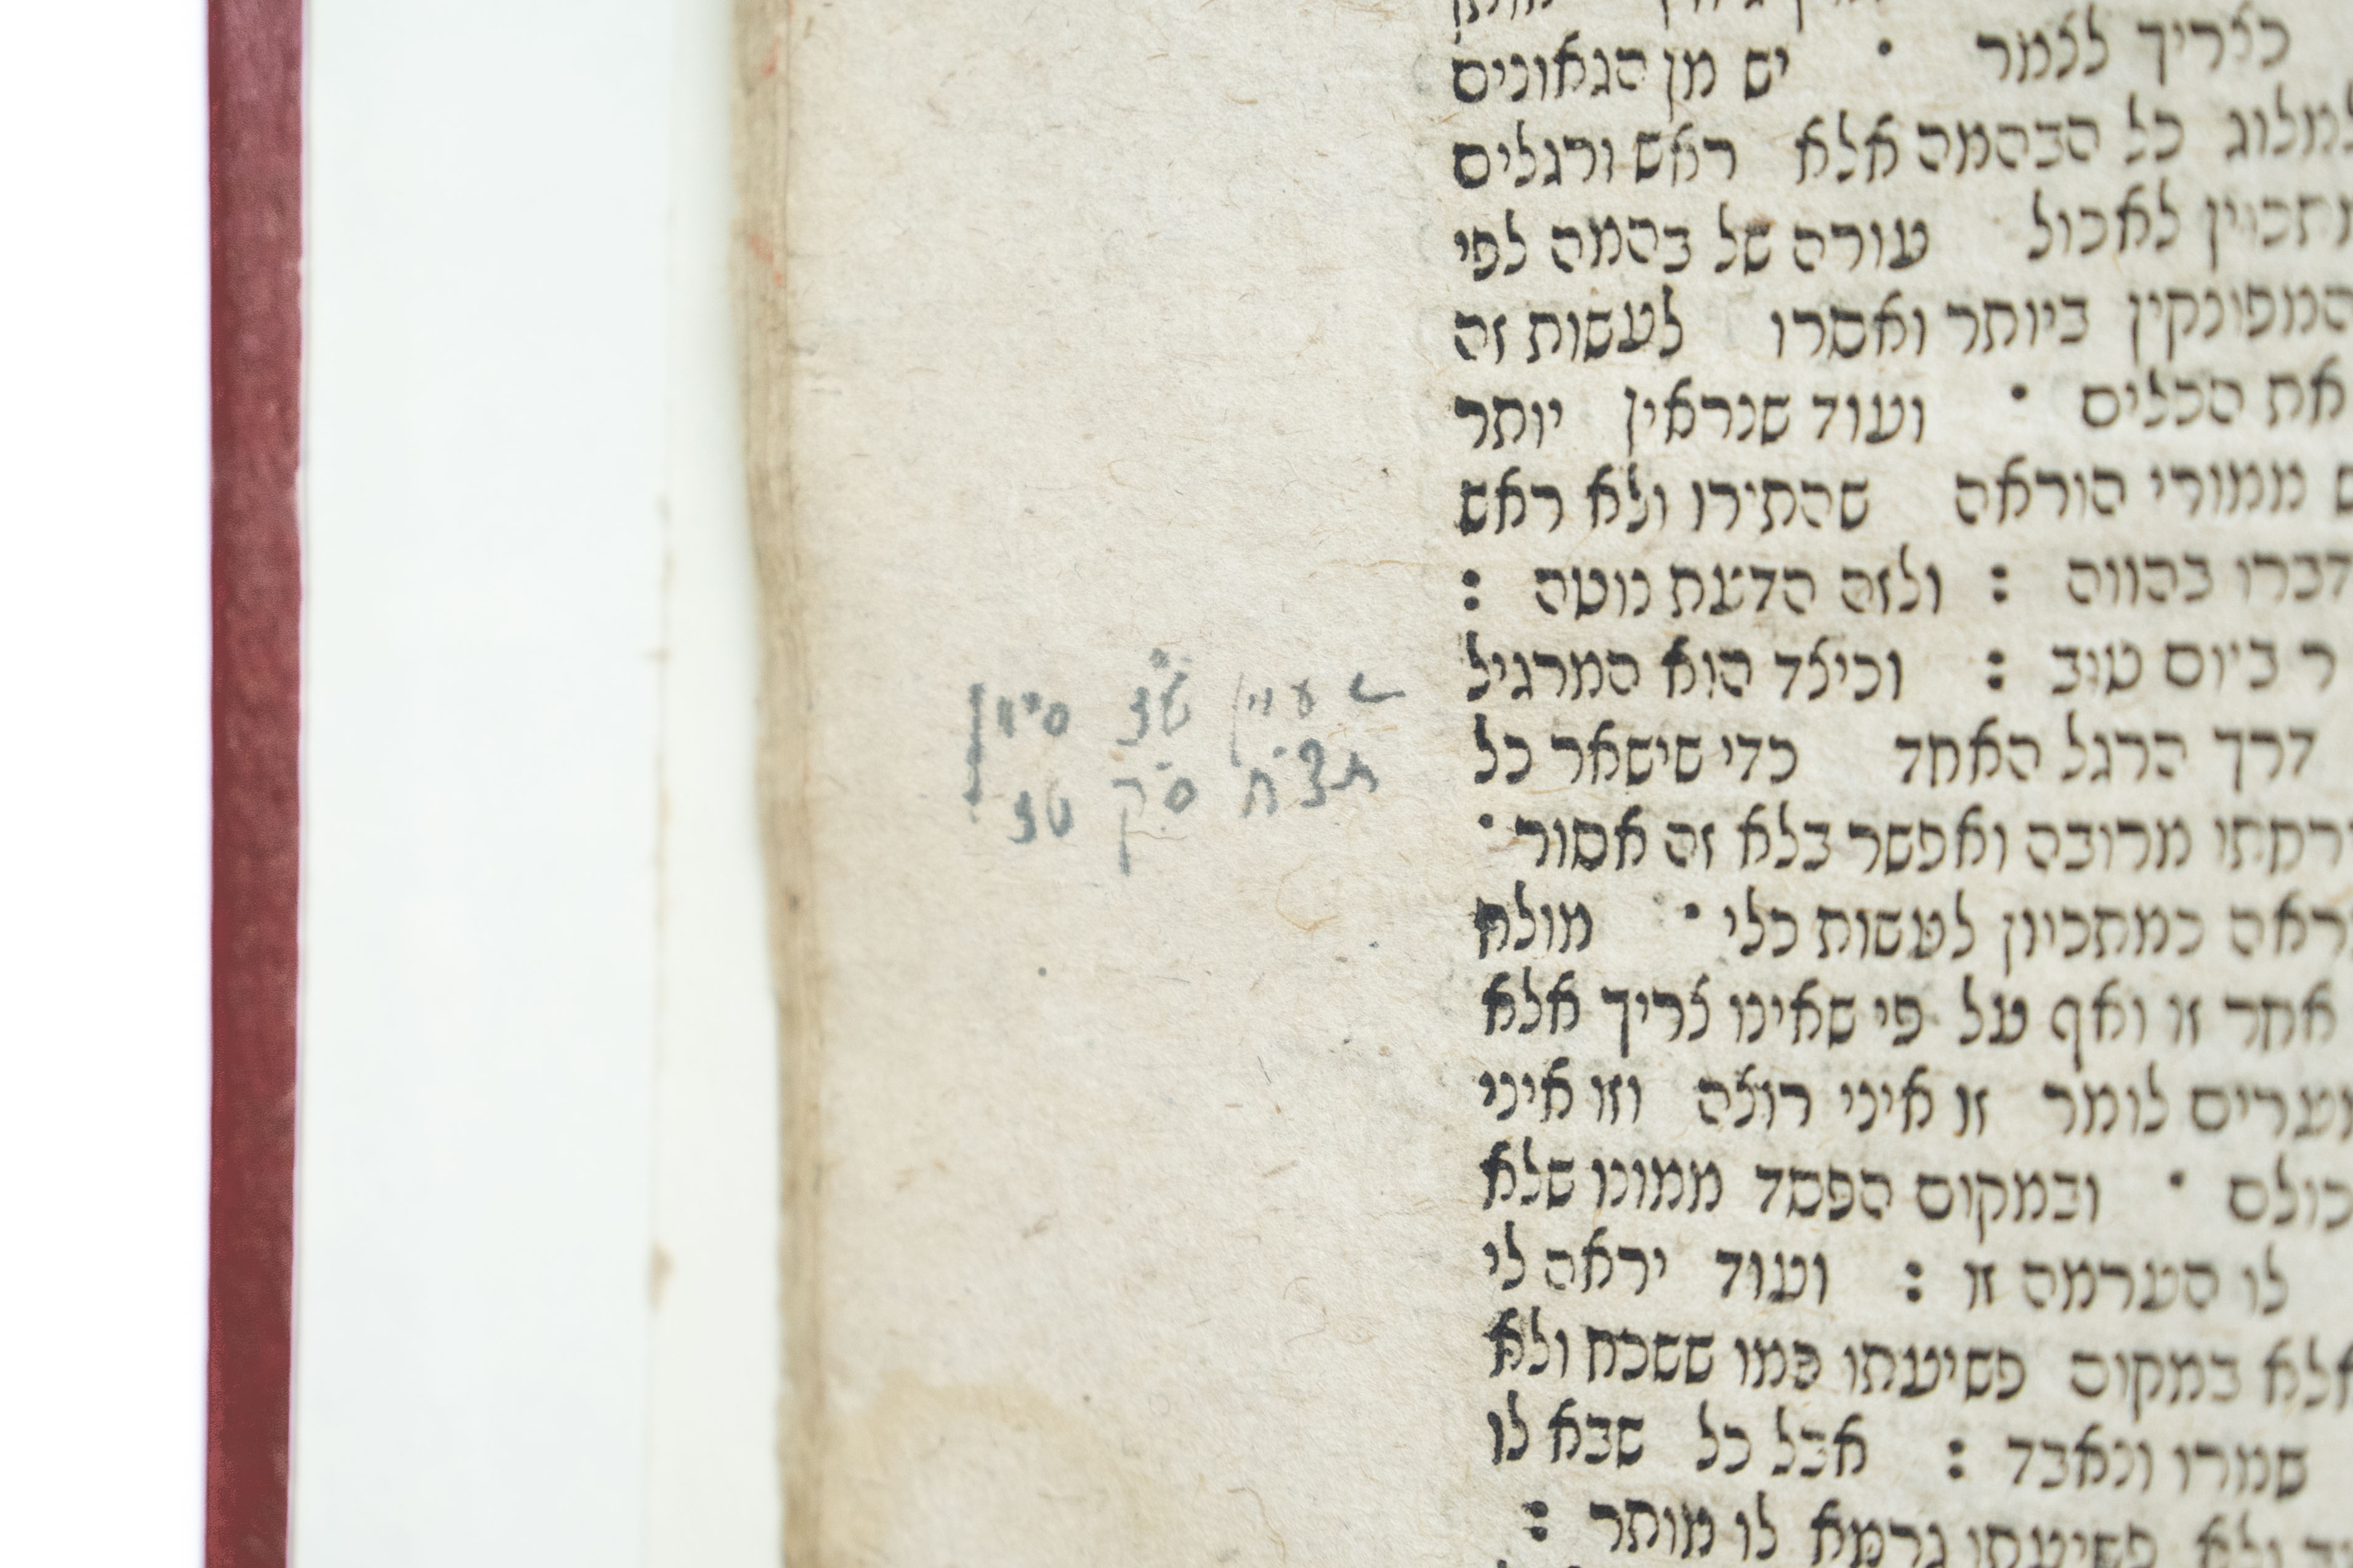 כצריך לגמר · יש מן הגאונים
למלוג כל הבהמה אלא ראש ורגלים
לאכול עורה של בהמה לפי
המפונקין ביותר ואסרו לעשות זה
את הכלים · ועוד שנראין יותר
ממורי הוראה שהתירו ולא ראש
דברו בהווה : ולזה הדעת נוטה :
ביום טוב : וכיצד הוא המרגיל
דרך הרגל האחד כדי שישאר כל
מרובה ואפשר בלא זה אסור ·
כמתכוין לעשות כלי · מולח
אחר זו ואף על פי שאינו צריך אלא
לומר זו איני רוצה וזו איני
כולם · ובמקום הפסד ממונו שלא
לו הערמה זו : ועוד יראה לי
אלא במקום פשיעתו כמו ששכח ולא
שמרו ונאבד : אבל כל שבא לו
ולא פשיעתו גרמא לו מותר :
עיין ט״ז סימן
תצ״ח ס״ק